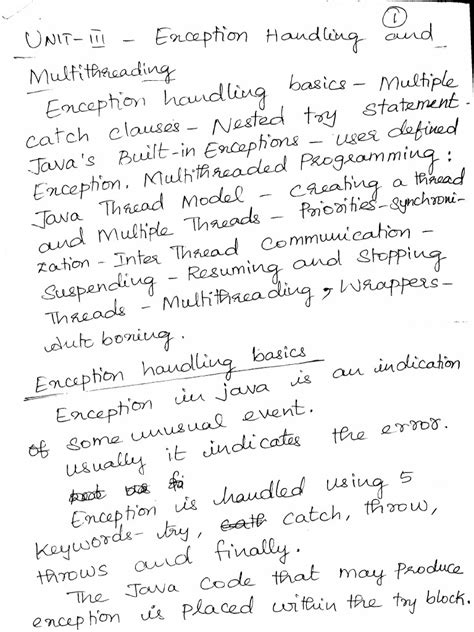 1
UNIT-III - Exception Handling and
Multithreading
Exception handling basics - Multiple
catch clauses - Nested try statement -
Java's Built-in Exceptions - user defined
Exception. Multithreaded Programming:
Java Thread Model - creating a thread
and Multiple Threads - Priorities - Synchroni-
zation - Inter Thread Communication -
Suspending - Resuming and Stopping
Threads - Multithreading, Wrappers -
Auto boxing.
Exception handling basics
Exception in java is an indication
of some unusual event.
usually it indicates the error.
Exception is handled using 5
keywords - try, catch, throw,
throws and finally.
The Java code that may produce
exception is placed within the try block.